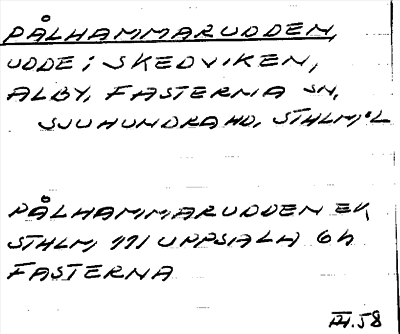 PÅLHAMMARUDDEN,
UDDE i SKEDVIKEN,
ALBY, FASTERNA SN,
SJUHUNDRA HD, STHLM, L
PÅLHAMMARUDDEN EK
STHLM, 111 UPPSALA 6h
FASTERNA
III.58